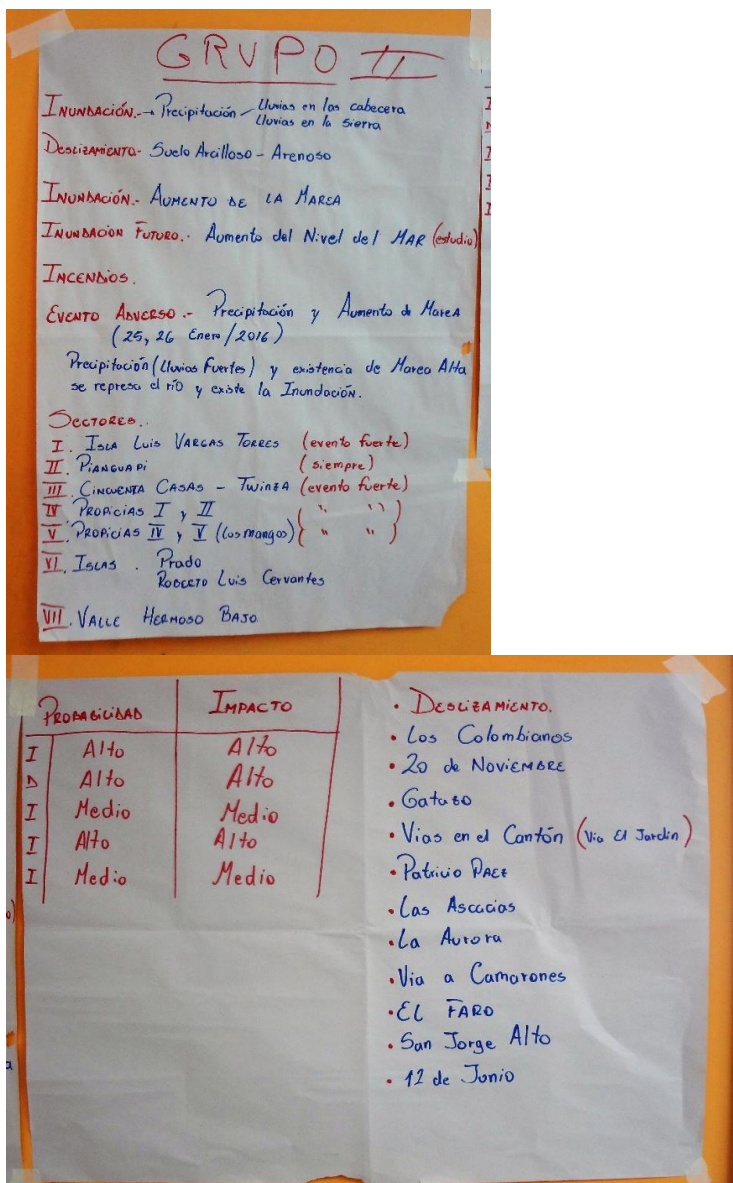 GRUPO II
INUNDACIÓN.-→ Precipitación - Lluvias en las cabecera
Lluvias en la Sierra
DESLIZAMIENTO- Suelo Arcilloso - Arenoso
INUNDACIÓN.- AUMENTO DE LA MAREA
INUNDACION FUTURO.- Aumento del Nivel del MAR (estudio)
INCENDIOS.
EVENTO ADVERSO.- Precipitación y Aumento de Marea
(25, 26 Enero/2016)
Precipitación (Lluvias Fuertes) y existencia de Marea Alta
se represa el río y existe la Inundación.
SECTORES..
I. ISLA LUIS VARGAS TORRES (evento fuerte)
II. PIANGUAPI (siempre)
III. CINCUENTA CASAS - TWINZA (evento fuerte)
IV PROPICIAS I y II { " " }
V. PROPICIAS IV y V (Los mangos) { " " }
VI. ISLAS. Prado
ROBERTO LUIS Cervantes
VII. VALLE HERMOSO BAJO
PROBABILIDAD IMPACTO
I Alto Alto
D Alto Alto
I Medio Medio
I Alto Alto
I Medio Medio
• DESLIZAMIENTO.
• Los Colombianos
• 20 de NOVIEMBRE
• Gatazo
• Vias en el Cantón (Via El Jardin)
• Patricio PAEZ
• Las Ascacias
• La Aurora
• Via a Camarones
• EL FARO
• San Jorge Alto
• 12 de Junio